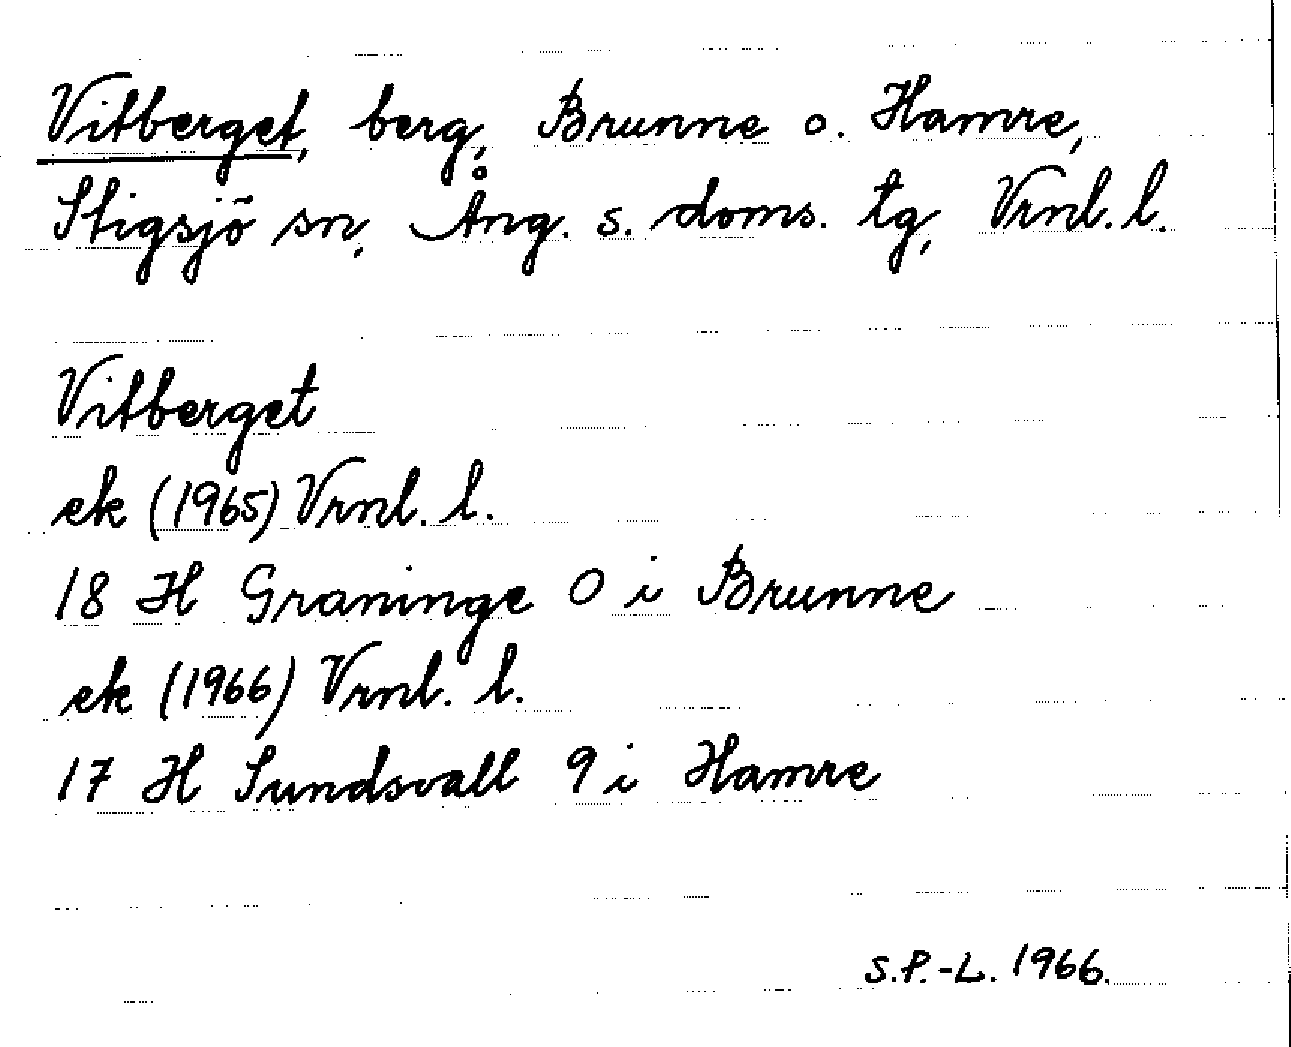 Vitberget, berg, Brunne o. Hamre,
Stigsjö sn, Ång. s. doms. tg, Vrnl. l.
Vitberget
ek (1965) Vrnl. l.
18 H Graninge 0 i Brunne
ek (1966) Vrnl. l.
17 H Sundsvall 9 i Hamre
S.P.-L. 1966.